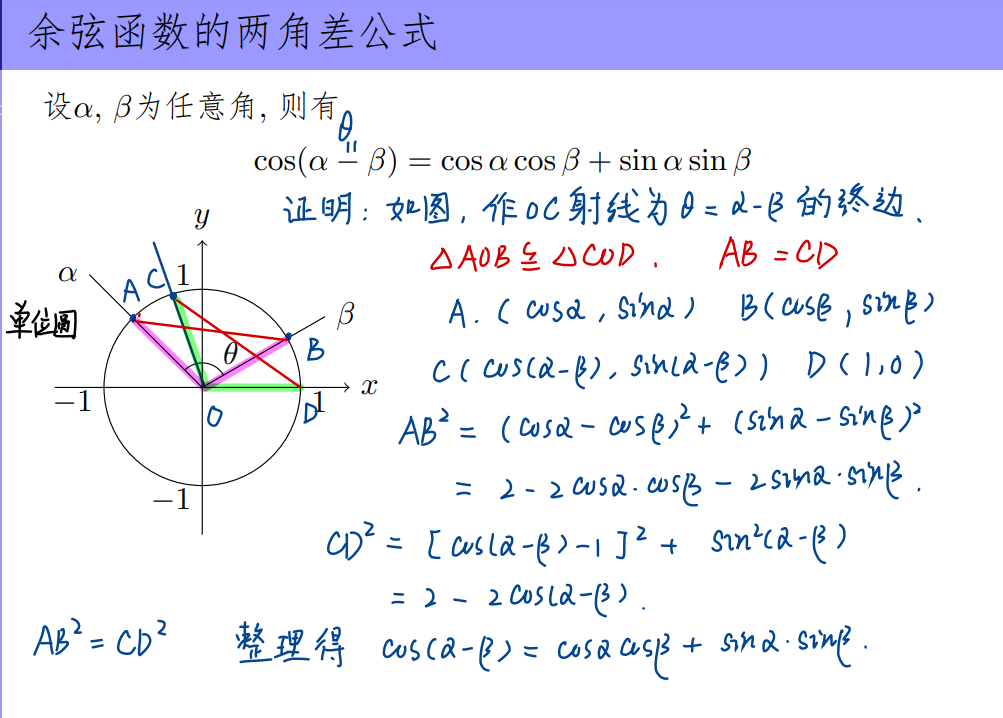 余弦函数的两角差公式
设α, β为任意角, 则有
θ
=
cos(α − β) = cos α cos β + sin α sin β
证明: 如图, 作OC射线为θ=α-β的终边.
△AOB ≌ △COD. AB = CD
A. (cosα, sinα) B(cosβ, sinβ)
C(cos(α-β), sin(α-β)) D(1,0)
AB² = (cosα - cosβ)² + (sinα - sinβ)²
= 2 - 2cosα·cosβ - 2sinα·sinβ.
CD² = [cos(α-β)-1]² + sin²(α-β)
= 2 - 2cos(α-β).
AB² = CD² 整理得 cos(α-β) = cosα cosβ + sinα·sinβ.
y
α A C 1
单位圖 β
θ B
−1 O D 1 x
−1